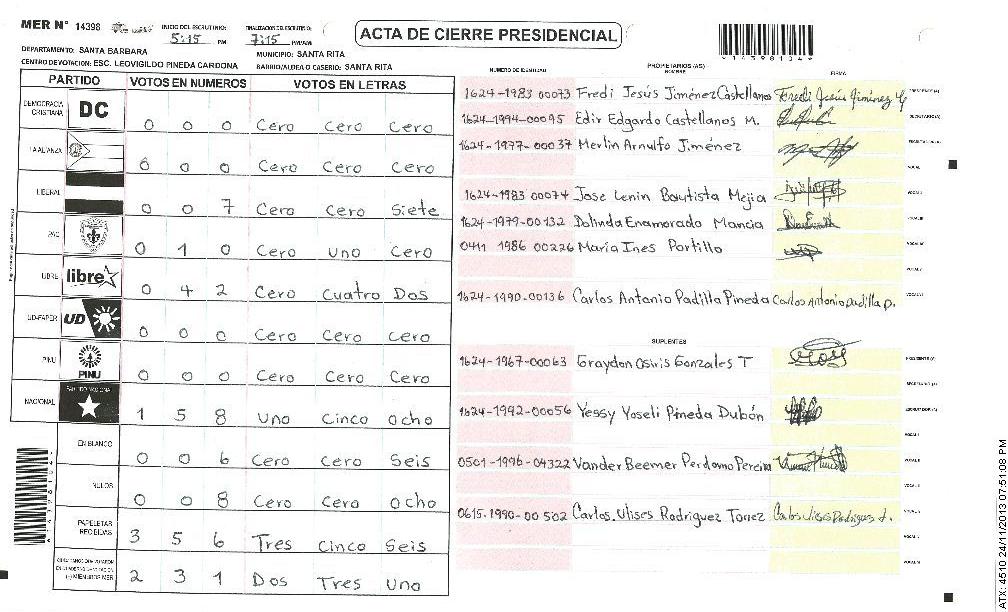 MER N° 14398
INICIO DEL ESCRUTINIO: 5:15 PM
FINALIZACION DEL ESCRUTINIO: 7:15 PM/AM
ACTA DE CIERRE PRESIDENCIAL
*14398104*
DEPARTAMENTO: SANTA BARBARA
MUNICIPIO: SANTA RITA
CENTRO DE VOTACION: ESC. LEOVIGILDO PINEDA CARDONA
BARRIO/ALDEA O CASERIO: SANTA RITA
PARTIDO VOTOS EN NUMEROS VOTOS EN LETRAS
DEMOCRACIA CRISTIANA DC 0 0 0 Cero Cero Cero
LA ALIANZA 0 0 0 Cero Cero Cero
LIBERAL 0 0 7 Cero Cero Siete
PAC 0 1 0 Cero uno Cero
LIBRE libre 0 4 2 Cero Cuatro Dos
UD-FAPER UD 0 0 0 Cero Cero Cero
PINU PINU 0 0 0 Cero Cero Cero
NACIONAL PARTIDO NACIONAL 1 5 8 Uno Cinco ocho
EN BLANCO 0 0 6 Cero Cero Seis
NULOS 0 0 8 Cero Cero ocho
PAPELETAS RECIBIDAS 3 5 6 Tres Cinco Seis
(+) MIEMBROS MER 2 3 1 Dos Tres Uno
NUMERO DE IDENTIDAD PROPIETARIOS (AS) NOMBRE FIRMA
1624-1983 00073 Fredi Jesús Jiménez Castellanos Fredi Jesus Jiménez C PRESIDENTE (A)
1624-1994-00095 Edir Edgardo Castellanos M. SECRETARIO (A)
1624-1977-00037 Merlin Arnulfo Jiménez ESCRUTADOR (A)
VOCAL I
1624-1983 00074 Jose Lenin Bautista Mejia VOCAL II
1624-1979-00132 Dolinda Enamorado Mancia VOCAL III
0411 1986 00226 Maria Ines Portillo VOCAL IV
VOCAL V
1624-1990-00136 Carlos Antonio Padilla Pineda Carlos Antonio padilla p. VOCAL VI
SUPLENTES
1624-1967-00063 Graydon Osiris Gonzales T PRESIDENTE (A)
SECRETARIO (A)
1624-1992-00056 Yessy Yoseli Pineda Dubón ESCRUTADOR (A)
VOCAL I
0501-1996-04322 Vander Beemer Perdomo Pereira VOCAL II
VOCAL III
0615-1990-00502 Carlos Ulises Rodriguez Torrez Carlos Ulises Rodriguez t. VOCAL IV
VOCAL V
VOCAL VI
ATX: 4510 24/11/2013 07:51:08 PM